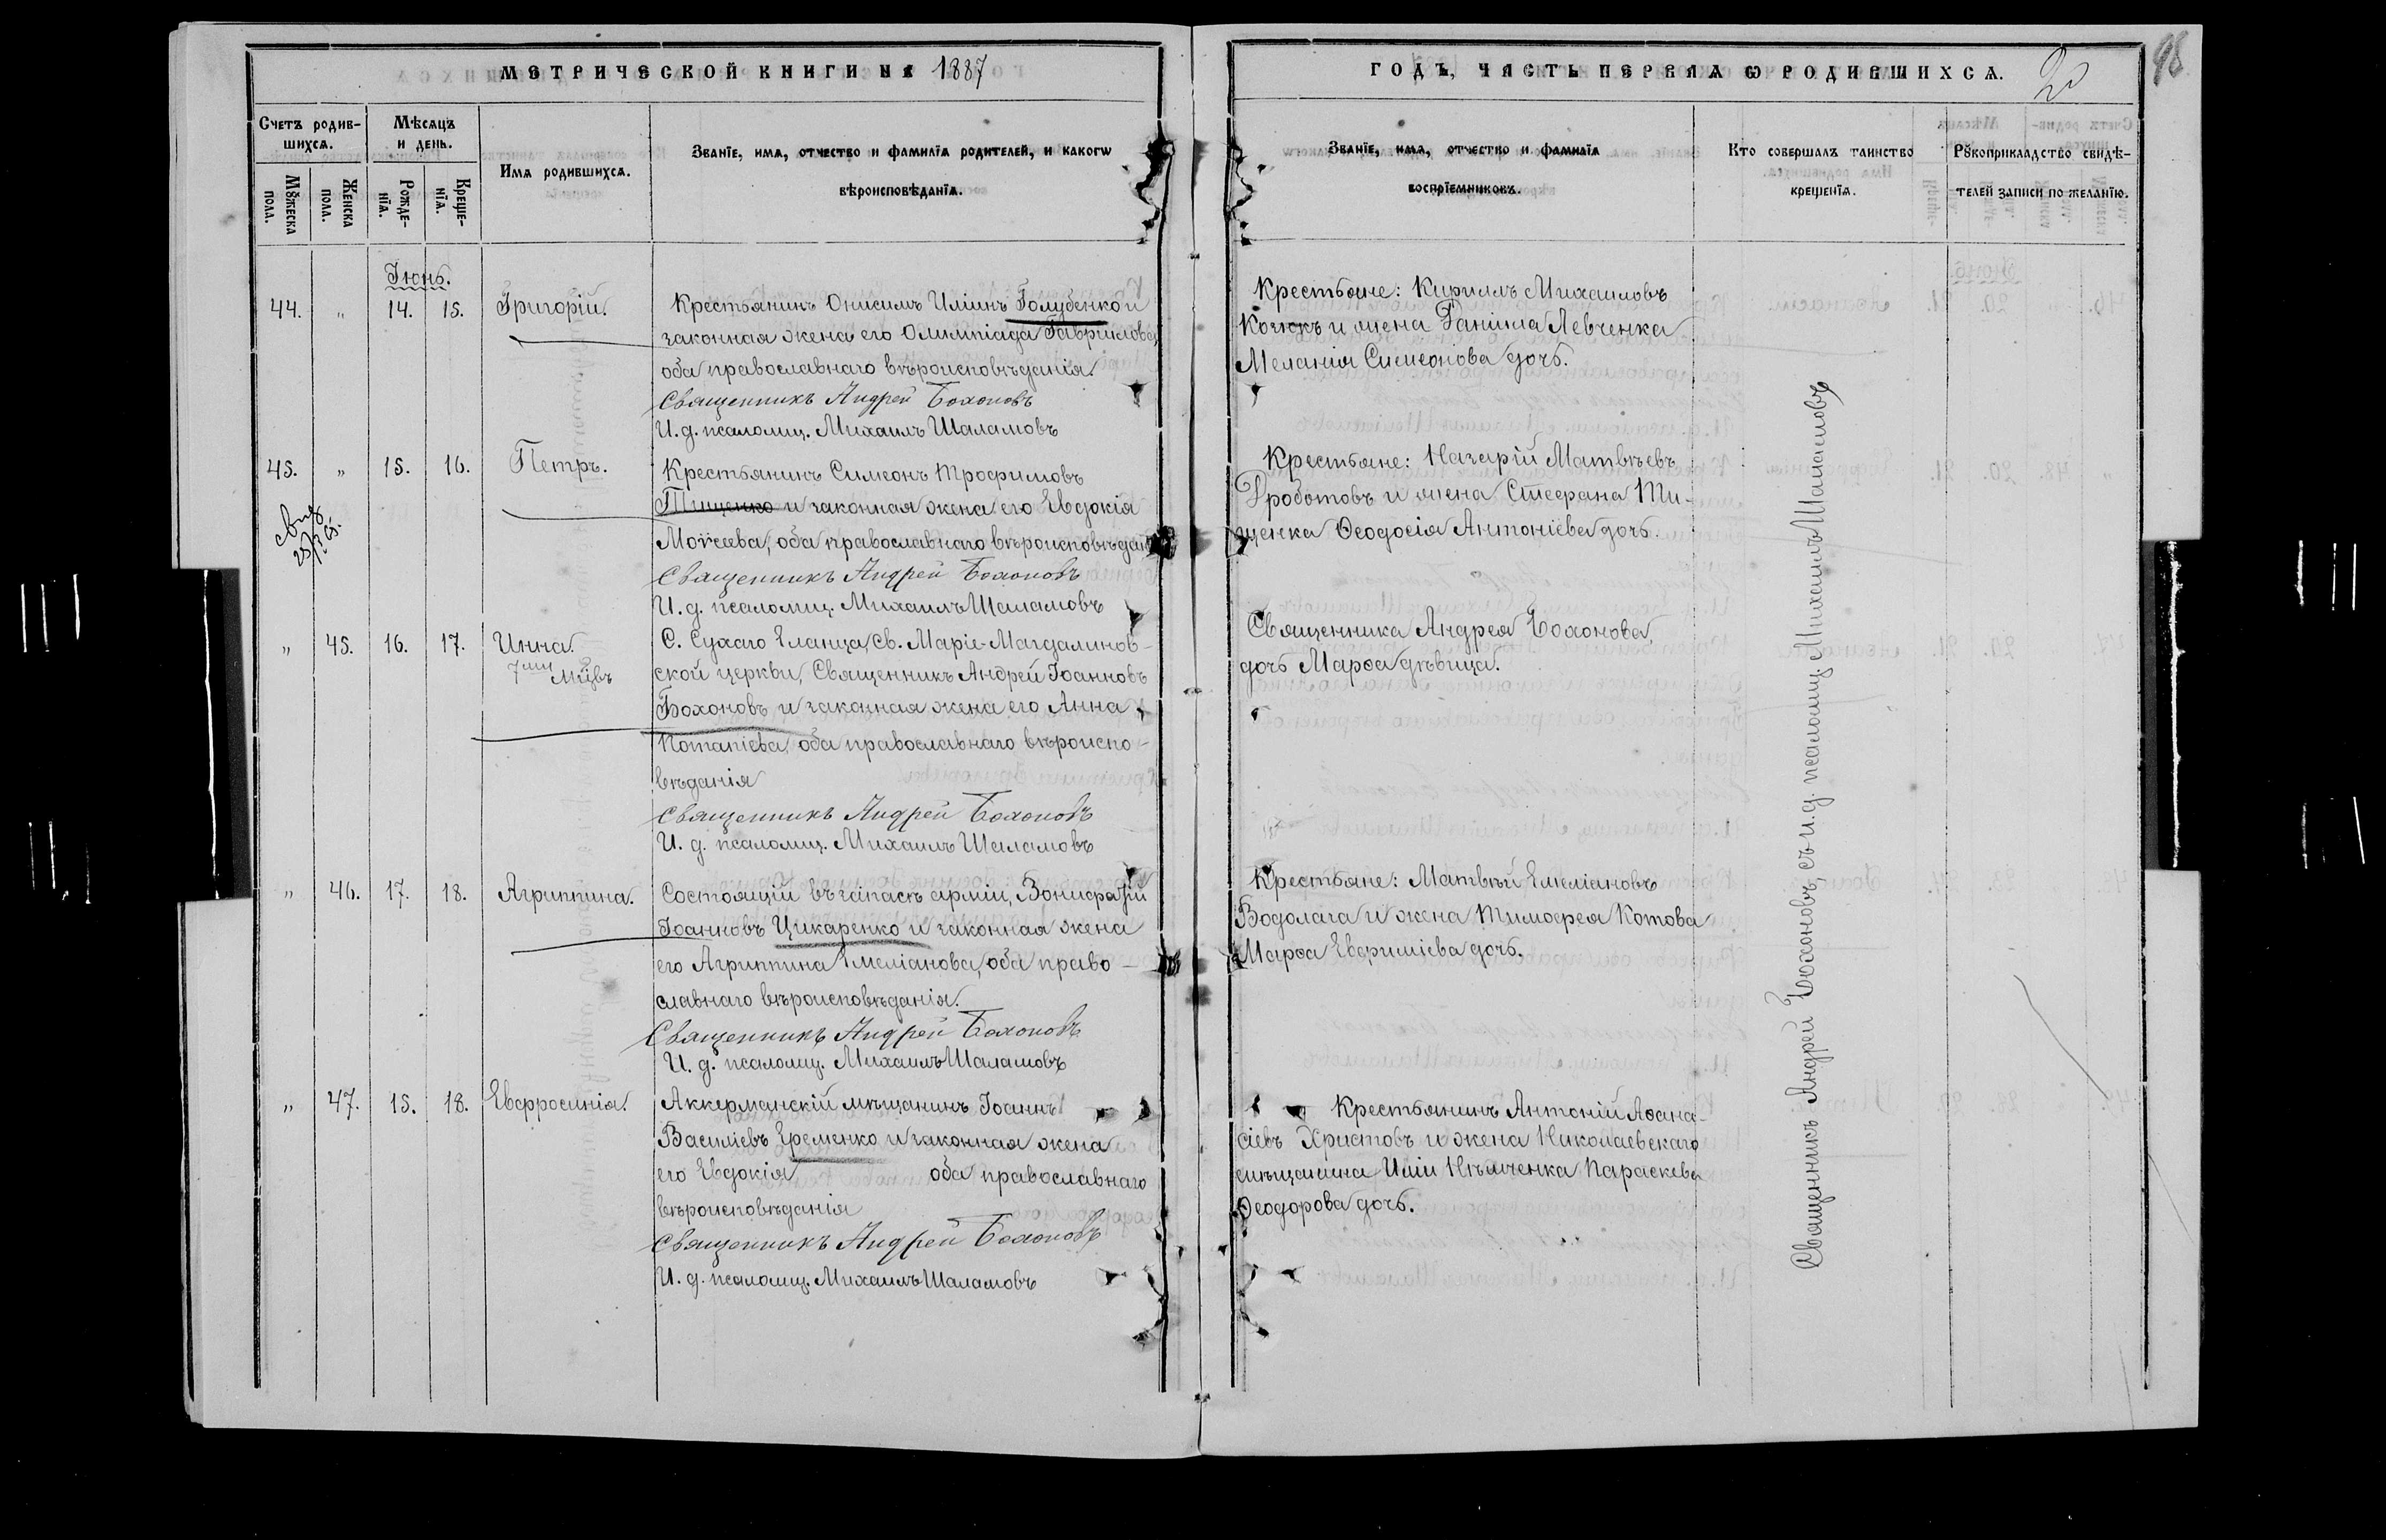 МЕТРИЧЕСКОЙ КНИГИ НА 1887
ГОДЪ, ЧАСТЬ ПЕРВАЯ Ѡ РОДИВШИХСЯ.
20
98
Счетъ родив-
шихся.
Мѣсяцъ
и день.
Имя родившихся.
Званїе, имя, отчество и фамилїя родителей, и какогѡ
вѣроисповѣданїя.
Мꙋжеска
пола.
Женска
пола.
Рожде-
нїя.
Креще-
нїя.
Званїе, имя, отчество и фамилїя
воспрїемниковъ.
Кто совершалъ таинство
крещенїя.
Рꙋкоприкладство свидѣ-
телей записи по желанїю.
Іюнь.
44. " 14. 15. Григорій.
Крестьянинъ Онисимъ Иліинъ Голубенко и
законная жена его Олимпіада Гавріилова,
оба православнаго вѣроисповѣданія.
Священникъ Андрей Бохоновъ
И. д. псаломщ. Михаилъ Шаламовъ
Крестьяне: Кириллъ Михаиловъ
и жена Даніила Левченка
Меланія Симеонова дочь.
45. " 15. 16. Петръ.
Крестьянинъ Симеонъ Трофимовъ
Тищенко и законная жена его Евдокія
Моѵсеева, оба православнаго вѣроисповѣдан
Священникъ Андрей Бохоновъ
И. д. псаломщ. Михаилъ Шаламовъ
Крестьяне: Назарій Матвѣевъ
Дроботовъ и жена Стефана Ти-
щенка Ѳеодосія Антоніева дочь.
" 45. 16. 17. Инна.
7ми мцвъ
С. Сухаго Еланца, Св. Маріе-Магдалинов-
ской церкви, Священникъ Андрей Іоанновъ
Бохоновъ и законная жена его Анна
Потапіева, оба православнаго вѣроиспо-
вѣданія
Священникъ Андрей Бохоновъ
И. д. псаломщ. Михаилъ Шаламовъ
Священника Андрея Бохонова,
дочь Марѳа дѣвица.
" 46. 17. 18. Агриппина.
Состоящій въ запасѣ арміи, Вонифатій
Іоанновъ Цикаренко и законная жена
его Агриппина Емеліанова, оба право-
славнаго вѣроисповѣданія.
Священникъ Андрей Бохоновъ
И. д. псаломщ. Михаилъ Шаламовъ
Крестьяне: Матвѣй Емеліановъ
Водолага и жена Тимофея Котова
Марѳа Евфиміева дочь.
" 47. 15. 18. Евфросинія.
Аккерманскій мѣщанинъ Іоаннъ
Василіевъ Еременко и законная жена
его Евдокія оба православнаго
вѣроисповѣданія
Священникъ Андрей Бохоновъ
И. д. псаломщ. Михаилъ Шаламовъ
Крестьянинъ Антоній Аѳана-
сіевъ Христовъ и жена Николаевскаго
мѣщанина Иліи Нѣмченка Параскева
Ѳеодорова дочь.
Священникъ Андрей Бохоновъ, съ и. д. псаломщ. Михаилъ Шаламовъ